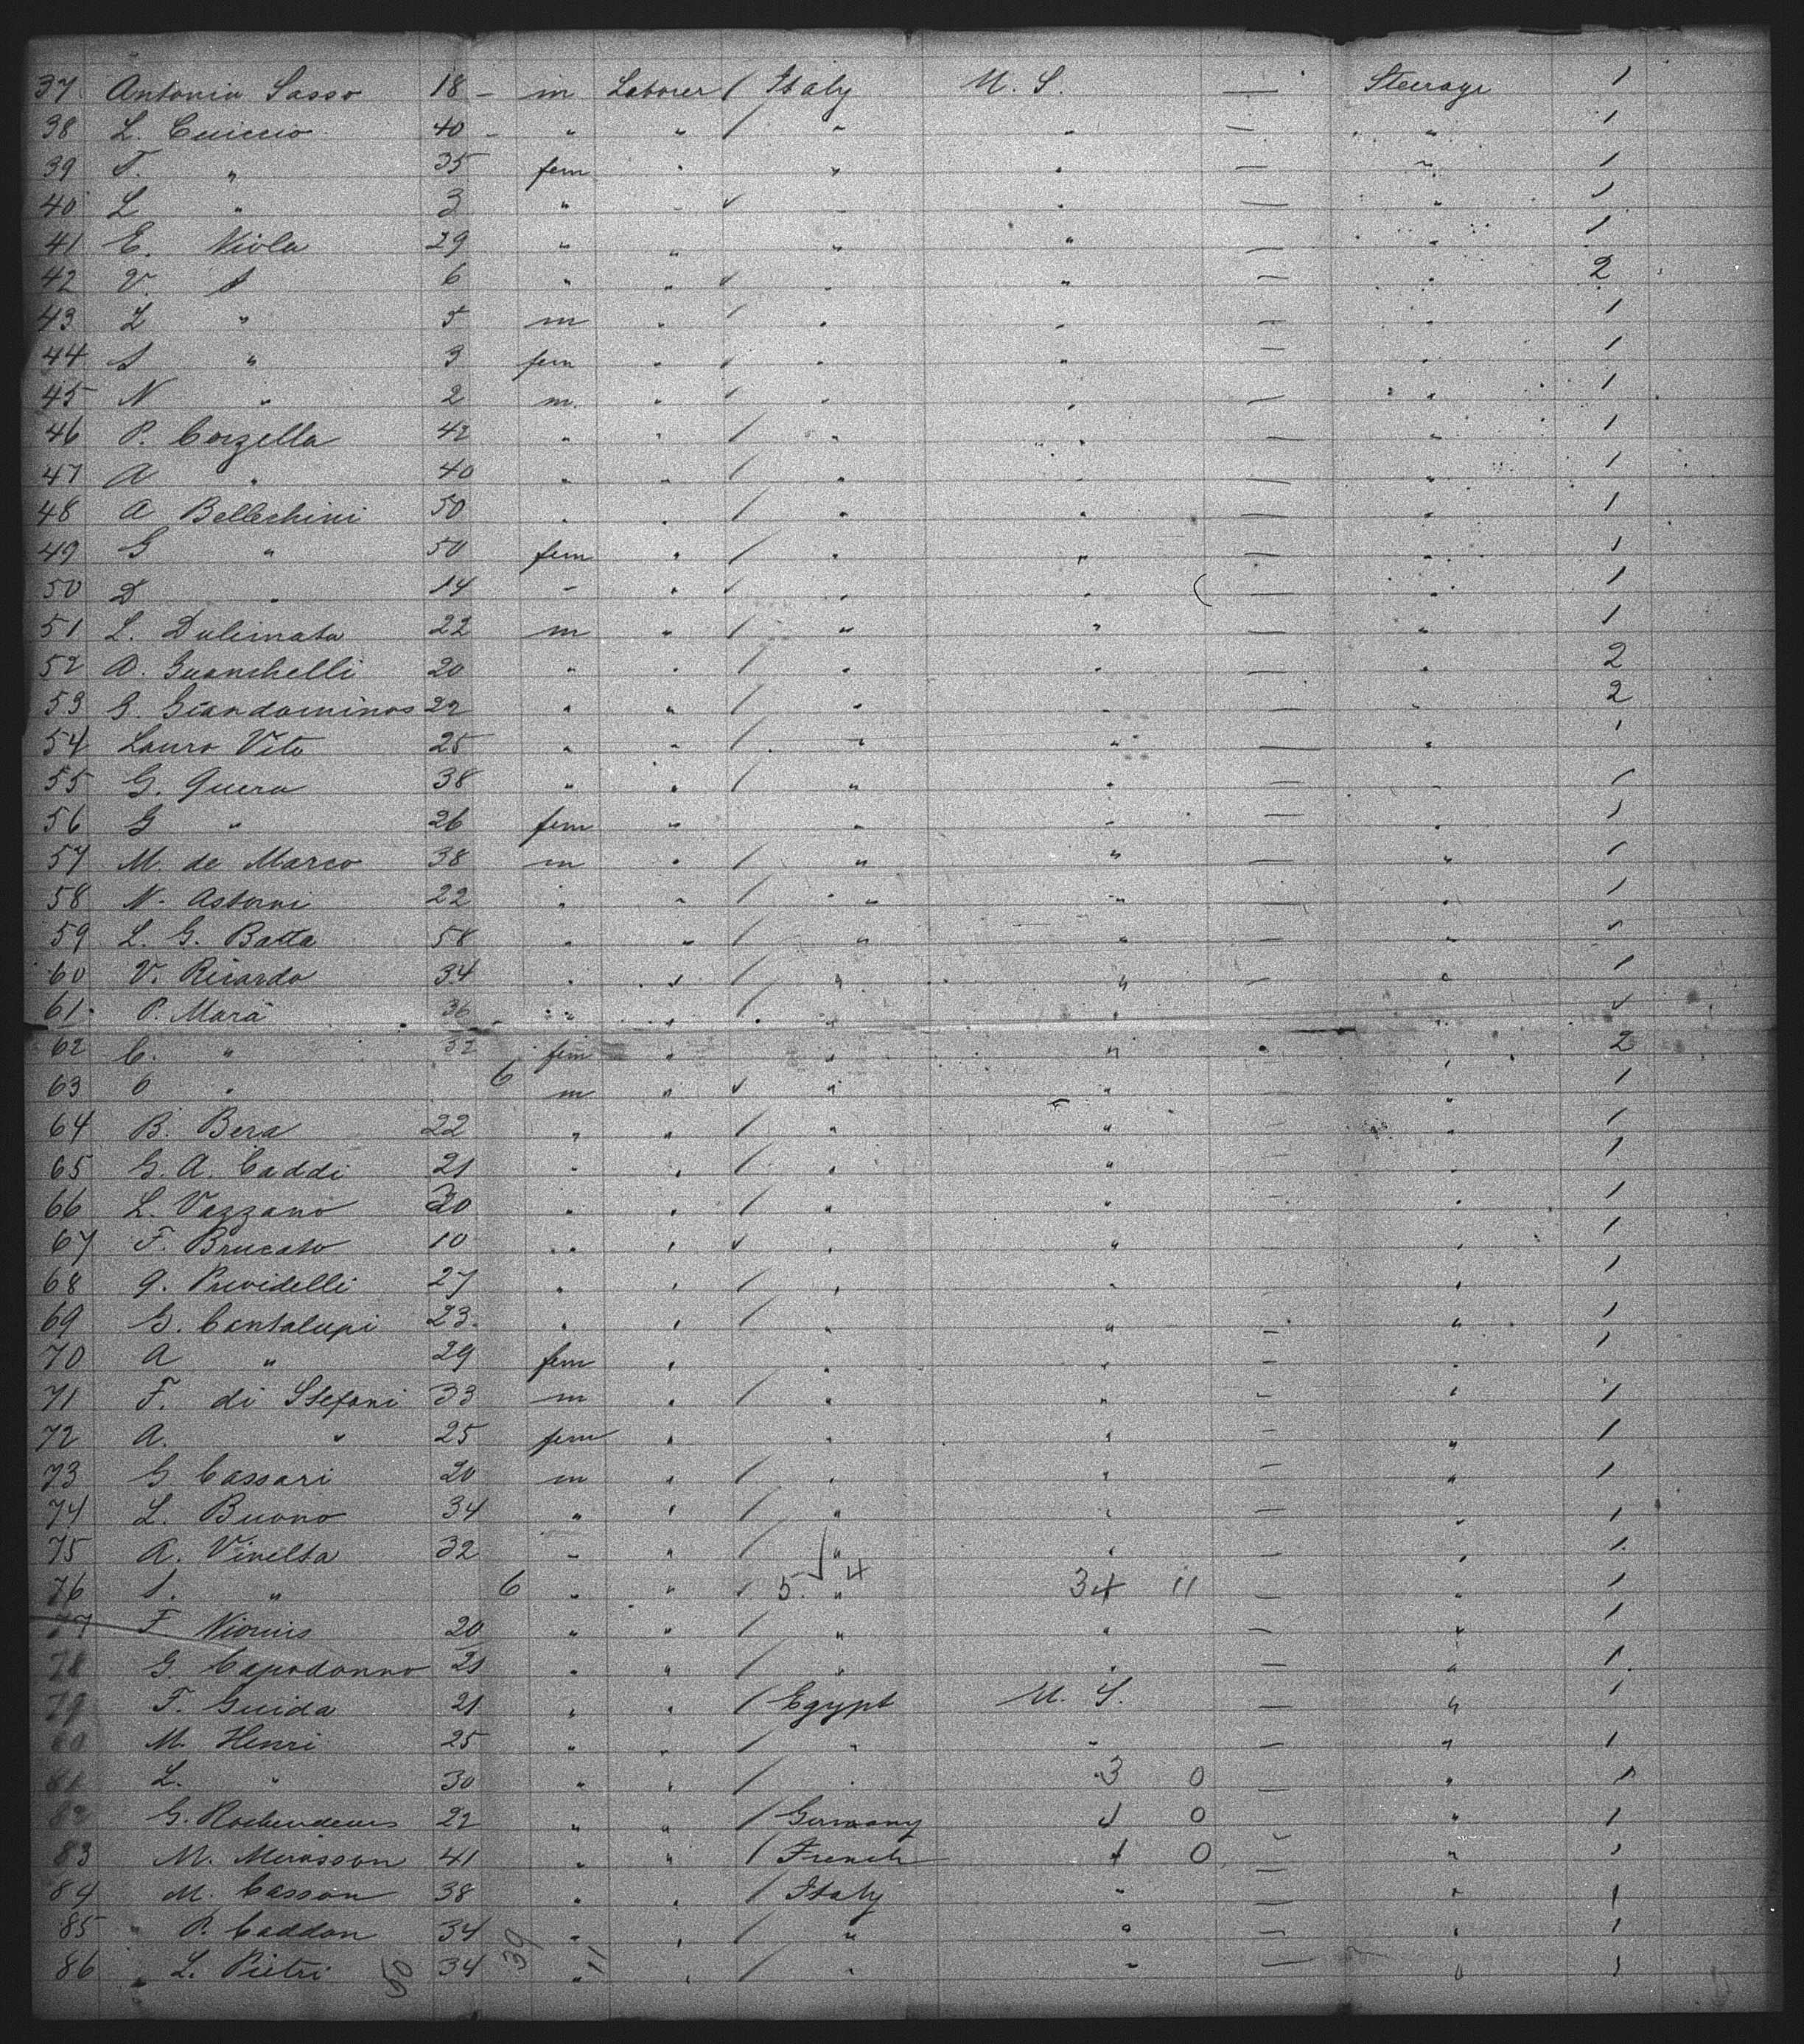 37 Antonio Sasso 18 - m Laborer / Italy U. S. — Steerage 1
38 L. Cuiccio 40 - " " / " " — " 1
39 F. " 35 fem " " " — " 1
40 L " 3 " " ✓ " " — " 1
41 E. Viola 29 " " " " — " 1
42 V. " 6 " " ✓ " " — " 2
43 L " 5 m " ✓ " " — " 1
44 S " 3 fem " ✓ " " — " 1
45 N " 2 m. " ✓ " " — " 1
46 P. Corzella 42 " " / " " — " 1
47 A " 40 " " / " " — " 1
48 A Bellechini 50 " " / " " — " 1
49 G " 50 fem " / " " — " 1
50 D " 14 " " ✓ " " — " 1
51 L. Dulimata 22 m " / " " — " 1
52 A. Guanchelli 20 " " / " " — " 2
53 G. Giandominos 22 " " / " " — " 2
54 Lauro Vito 25 " " / " " — " 1
55 G. Quera 38 " " / " " — " 1
56 G " 26 fem " " " — " 1
57 M. de Marco 38 m " / " " — " 1
58 N. Astorni 22 " " / " " — " 1
59 L. G. Batta 58 " " / " " — " 1
60 V. Ricardo 34 " " / " " — " 1
61 P. Mara 36 " " / " " " 1
62 C. " 32 fem " " " " 2
63 O " 6 m " ✓ " " " 1
64 B. Bera 22 " " / " " — " 1
65 G. A. Caddi 21 " " / " " — " 1
66 L. Vazzano 20 " " / " " — " 1
67 F. Brucato 10 " " ✓ " " — " 1
68 G. Prividelli 27 " " / " " — " 1
69 G. Cantalupi 23 " " / " " — " 1
70 A " 29 fem " " " — " 1
71 F. di Stefani 33 m " / " " — " 1
72 A. " 25 fem " " " — " 1
73 G Cassari 20 m " / " " — " 1
74 L. Buono 34 " " / " " — " 1
75 A. Vinelta 32 " " / " " — " 1
76 S. " 6 " " ✓ 5 4 " 34 11 — " 1
77 F 20 " " / " " — " 1
78 G. Capodanno 21 " " / " " — " 1
79 F. Guida 21 " " / Egypt U. S. — " 1
80 M. Henri 25 " " / " " — " 1
81 L. " 30 " " / " 3 0 — " 1
82 G. 22 " " / Germany 1 0 " 1
83 M. Merasson 41 " " / French 1 0 — " 1
84 M. Casson 38 " " / Italy " — " 1
85 P. Caddon 34 " " / " " — " 1
86 L. Pietri 34 " " / " " — " 1
50 39 11